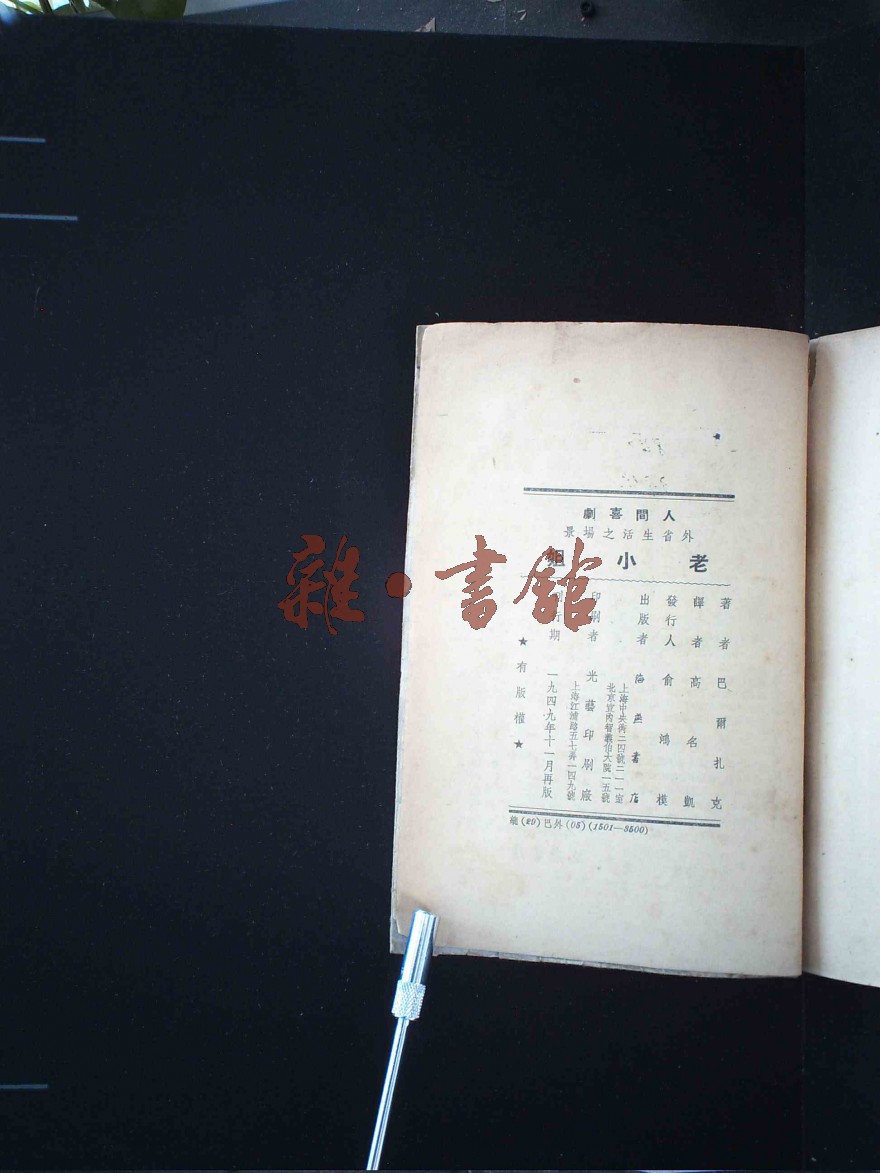 人間喜劇
外省生活之場景
老小姐
著者 巴爾扎克
譯者 高名凱
發行人 俞鴻模
出版者 海燕書店
上海中央街二四號二一一室
北京宣內智義伯大院一五號
印刷者 光藝印刷廠
上海江浦路五七弄一四九號
刊行期 一九四九年十一月再版
★有版權★
(29)巴外(05)(1501—3500)
雜·書館